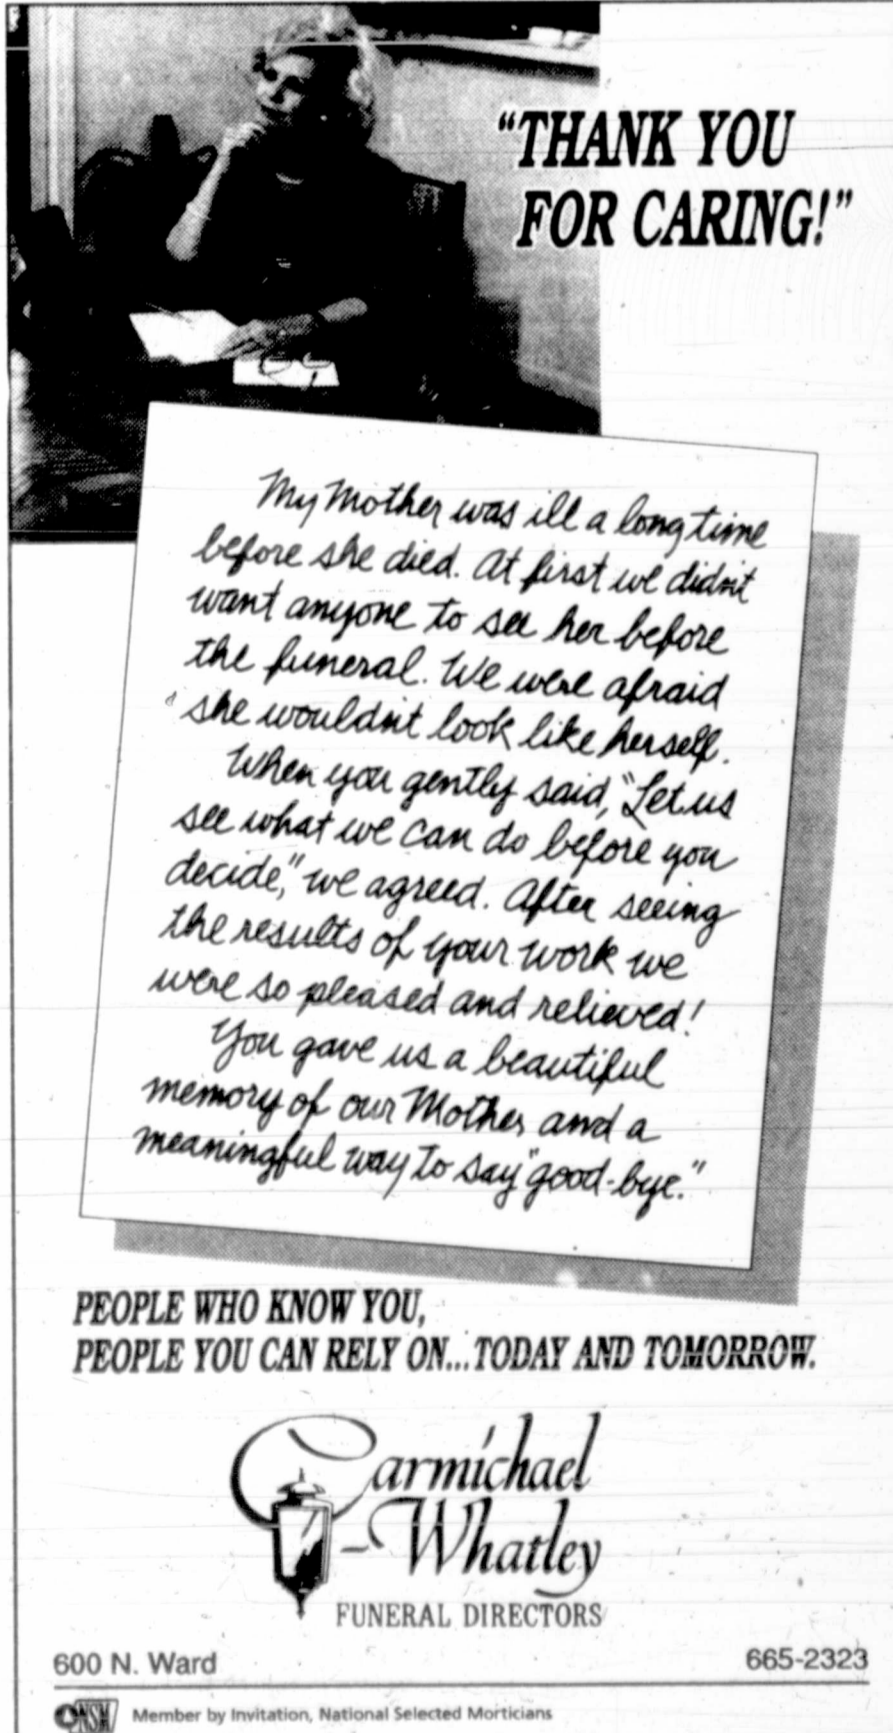 "THANK YOU
FOR CARING!"
My Mother was ill a long time
before she died. At first we didn't
want anyone to see her before
the funeral. We were afraid
she wouldn't look like herself.
When you gently said, "Let us
see what we can do before you
decide," we agreed. After seeing
the results of your work we
were so pleased and relieved!
You gave us a beautiful
memory of our Mother and a
meaningful way to say "good-bye."
PEOPLE WHO KNOW YOU,
PEOPLE YOU CAN RELY ON...TODAY AND TOMORROW.
Carmichael
-Whatley
FUNERAL DIRECTORS
600 N. Ward 665-2323
NSM Member by Invitation, National Selected Morticians